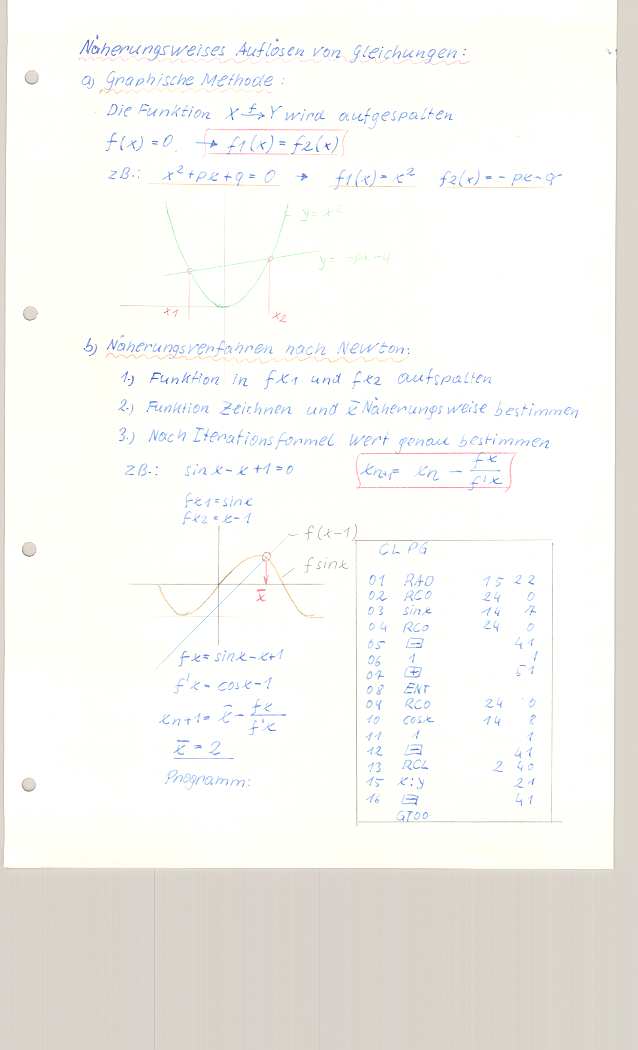 Näherungsweises Auflösen von Gleichungen:
a) Graphische Methode:
Die Funktion X f→ Y wird aufgespalten
f(x) = 0 → f1(x) = f2(x)
zB.: x² + px + q = 0 → f1(x) = x² f2(x) = - px - q
y = x²
y = -px-q
x1 x2
b) Näherungsverfahren nach Newton:
1.) Funktion in fx1 und fx2 aufspalten
2.) Funktion Zeichnen und x̄ Näherungsweise bestimmen
3.) Nach Iterationsformel Wert genau bestimmen
zB.: sinx - x + 1 = 0 xn+1 = xn - fx / f'x
fx1 = sinx
fx2 = x - 1
f(x-1)
f sinx
x̄
fx = sinx - x + 1
f'x = cosx - 1
xn+1 = x̄ - fx / f'x
x̄ = 2
Programm:
CL PG
01 RAD 15 22
02 RCO 24 0
03 sinx 14 7
04 RCO 24 0
05 ⊟ 41
06 1 1
07 ⊞ 51
08 ENT
09 RCO 24 0
10 cosx 14 8
11 1 1
12 ⊟ 41
13 RCL 2 40
15 x:y 21
16 ⊟ 41
GTOO